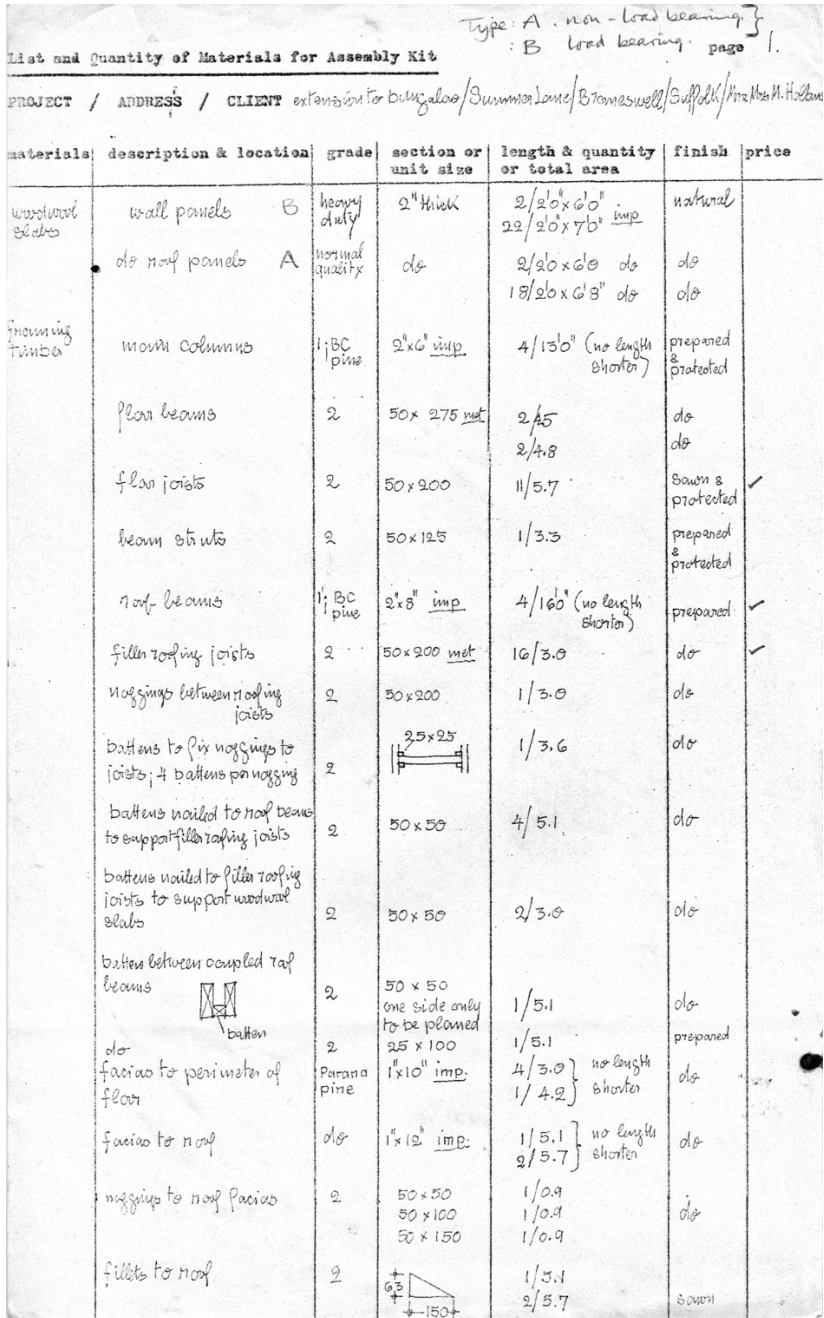 Type: A. non-load bearing }
: B load bearing. page 1.
List and Quantity of Materials for Assembly Kit
PROJECT / ADDRESS / CLIENT extension to bungalow/Summer Lane/Bromeswell/Suffolk/Mr & Mrs N. Holland
materials description & location grade section or unit size length & quantity or total area finish price
woodwool slabs wall panels B heavy duty 2" thick 2/2'0"x6'0" natural
22/2'0"x7'0" imp
do roof panels A normal quality do 2/2'0x6'0 do do
18/2'0x6'8" do do
framing timber main columns 1; BC pine 2"x6" imp 4/13'0" (no length shorter) prepared & protected
floor beams 2 50x 275 met 2/4.5 do
2/4.8 do
floor joists 2 50x200 11/5.7 sawn & protected ✓
beam struts 2 50x125 1/3.3 prepared & protected
roof beams 1; BC pine 2"x8" imp 4/16'0" (no length shorter) prepared ✓
filler roofing joists 2 50x200 met 16/3.0 do ✓
noggings between roofing joists 2 50x200 1/3.0 do
battens to fix noggings to joists; 4 battens per nogging 2 25x25 1/3.6 do
battens nailed to roof beams to support filler roofing joists 2 50x50 4/5.1 do
battens nailed to filler roofing joists to support woodwool slabs 2 50x50 2/3.0 do
batten between coupled roof beams 2 50 x 50 one side only to be planed 1/5.1 do
batten
do 2 25 x 100 1/5.1 prepared
facias to perimeter of floor Parana pine 1"x10" imp. 4/3.0 } no length shorter do
1/4.2
facias to roof do 1"x12" imp. 1/5.1 } no length shorter do
2/5.7
noggings to roof facias 2 50x50 1/0.9
50x100 1/0.9 do
50 x 150 1/0.9
fillets to roof 2 63 150 1/5.1
2/5.7 sawn